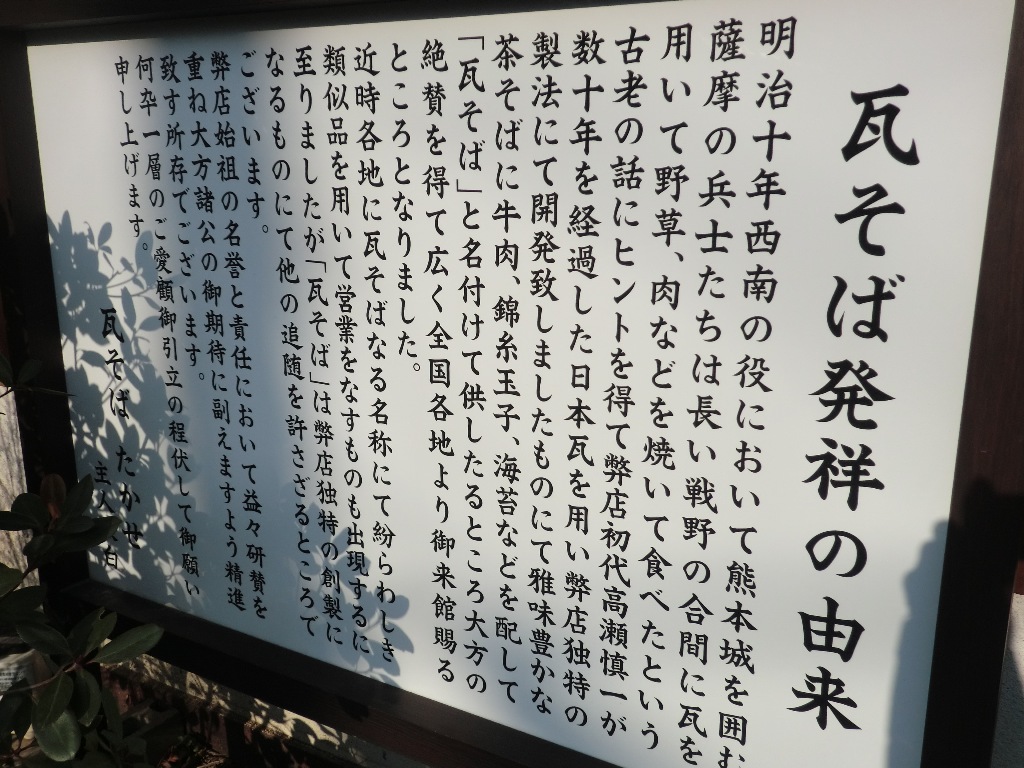 瓦そば発祥の由来
明治十年西南の役において熊本城を囲む
薩摩の兵士たちは長い戦野の合間に瓦を
用いて野草、肉などを焼いて食べたという
古老の話にヒントを得て弊店初代高瀬慎一が
数十年を経過した日本瓦を用い弊店独特の
製法にて開発致しましたものにて雅味豊かな
茶そばに牛肉、錦糸玉子、海苔などを配して
「瓦そば」と名付けて供したるところ大方の
絶賛を得て広く全国各地より御来館賜る
ところとなりました。
近時各地に瓦そばなる名称にて紛らわしき
類似品を用いて営業をなすものも出現するに
至りましたが「瓦そば」は弊店独特の創製に
なるものにて他の追随を許さざるところで
ございます。
弊店始祖の名誉と責任において益々研賛を
重ね大方諸公の御期待に副えますよう精進
致す所存でございます。
何卒一層のご愛顧御引立の程伏して御願い
申し上げます。
瓦そば たかせ
主人 白